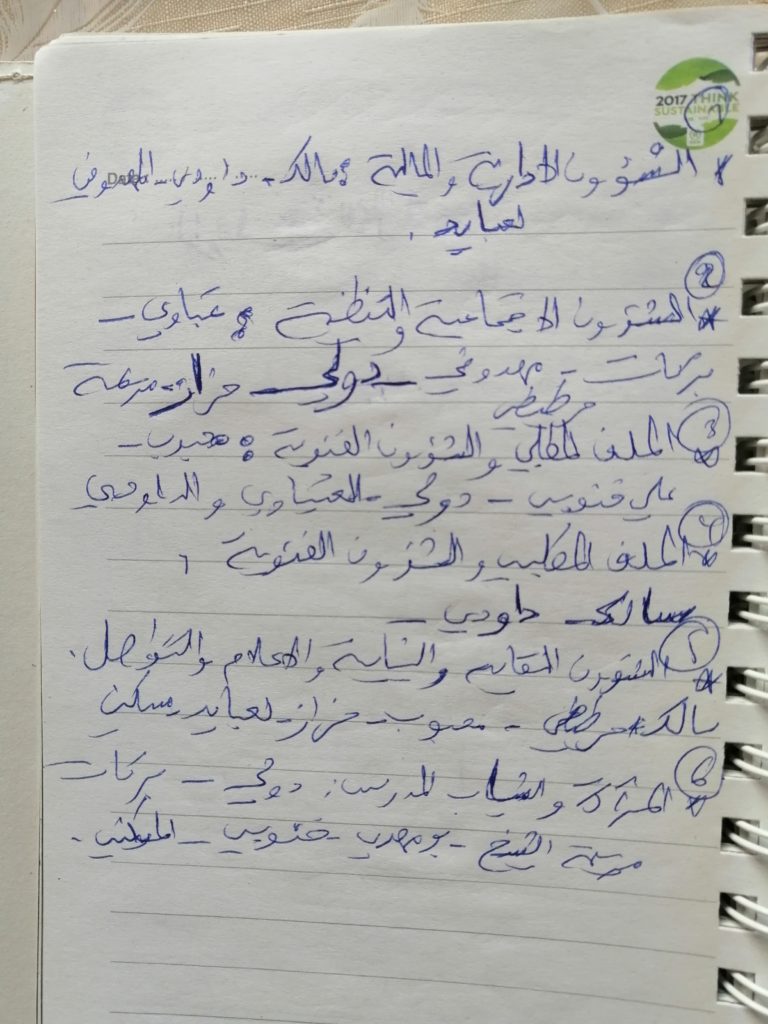 2017 THINK
SUSTAINABLE
1
* الشؤون الادارية والمالية : مالك - داودي - الصوفي
Date
لعبايد .
2
* الشؤون الاجتماعية والتنظيمية : عباوي -
بركات - مهدوفي - دولحي - خراز - مريمة
خربطي
3
* الملف المطلبي والشؤون الفئوية : محبوب -
علي فنويي - دولحي - العيساوي و الداودي
4
* الملف المطلبي والشؤون الفئوية
سالك - داودي -
5
* الشؤون النقابية و والاعلام والتواصل .
سالك - خربطي - محبوب - خراز - لعبايد - مسكين
6
* المرأة والشباب المدرسي : دولحي - بركات
مريمة الشيخ - بومهدي - فنويي - المسكيني .